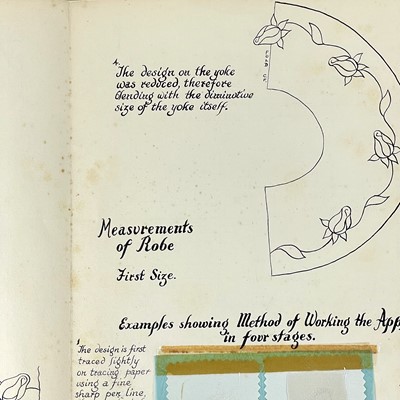 4.
The design on the yoke
was reduced, therefore
blending with the diminutive
size of the yoke itself.
FOLD
Measurements
of Robe
First Size.
Examples showing Method of Working the App
in four stages.
1
The design is first
traced lightly
on tracing paper
using a fine
sharp pen line,